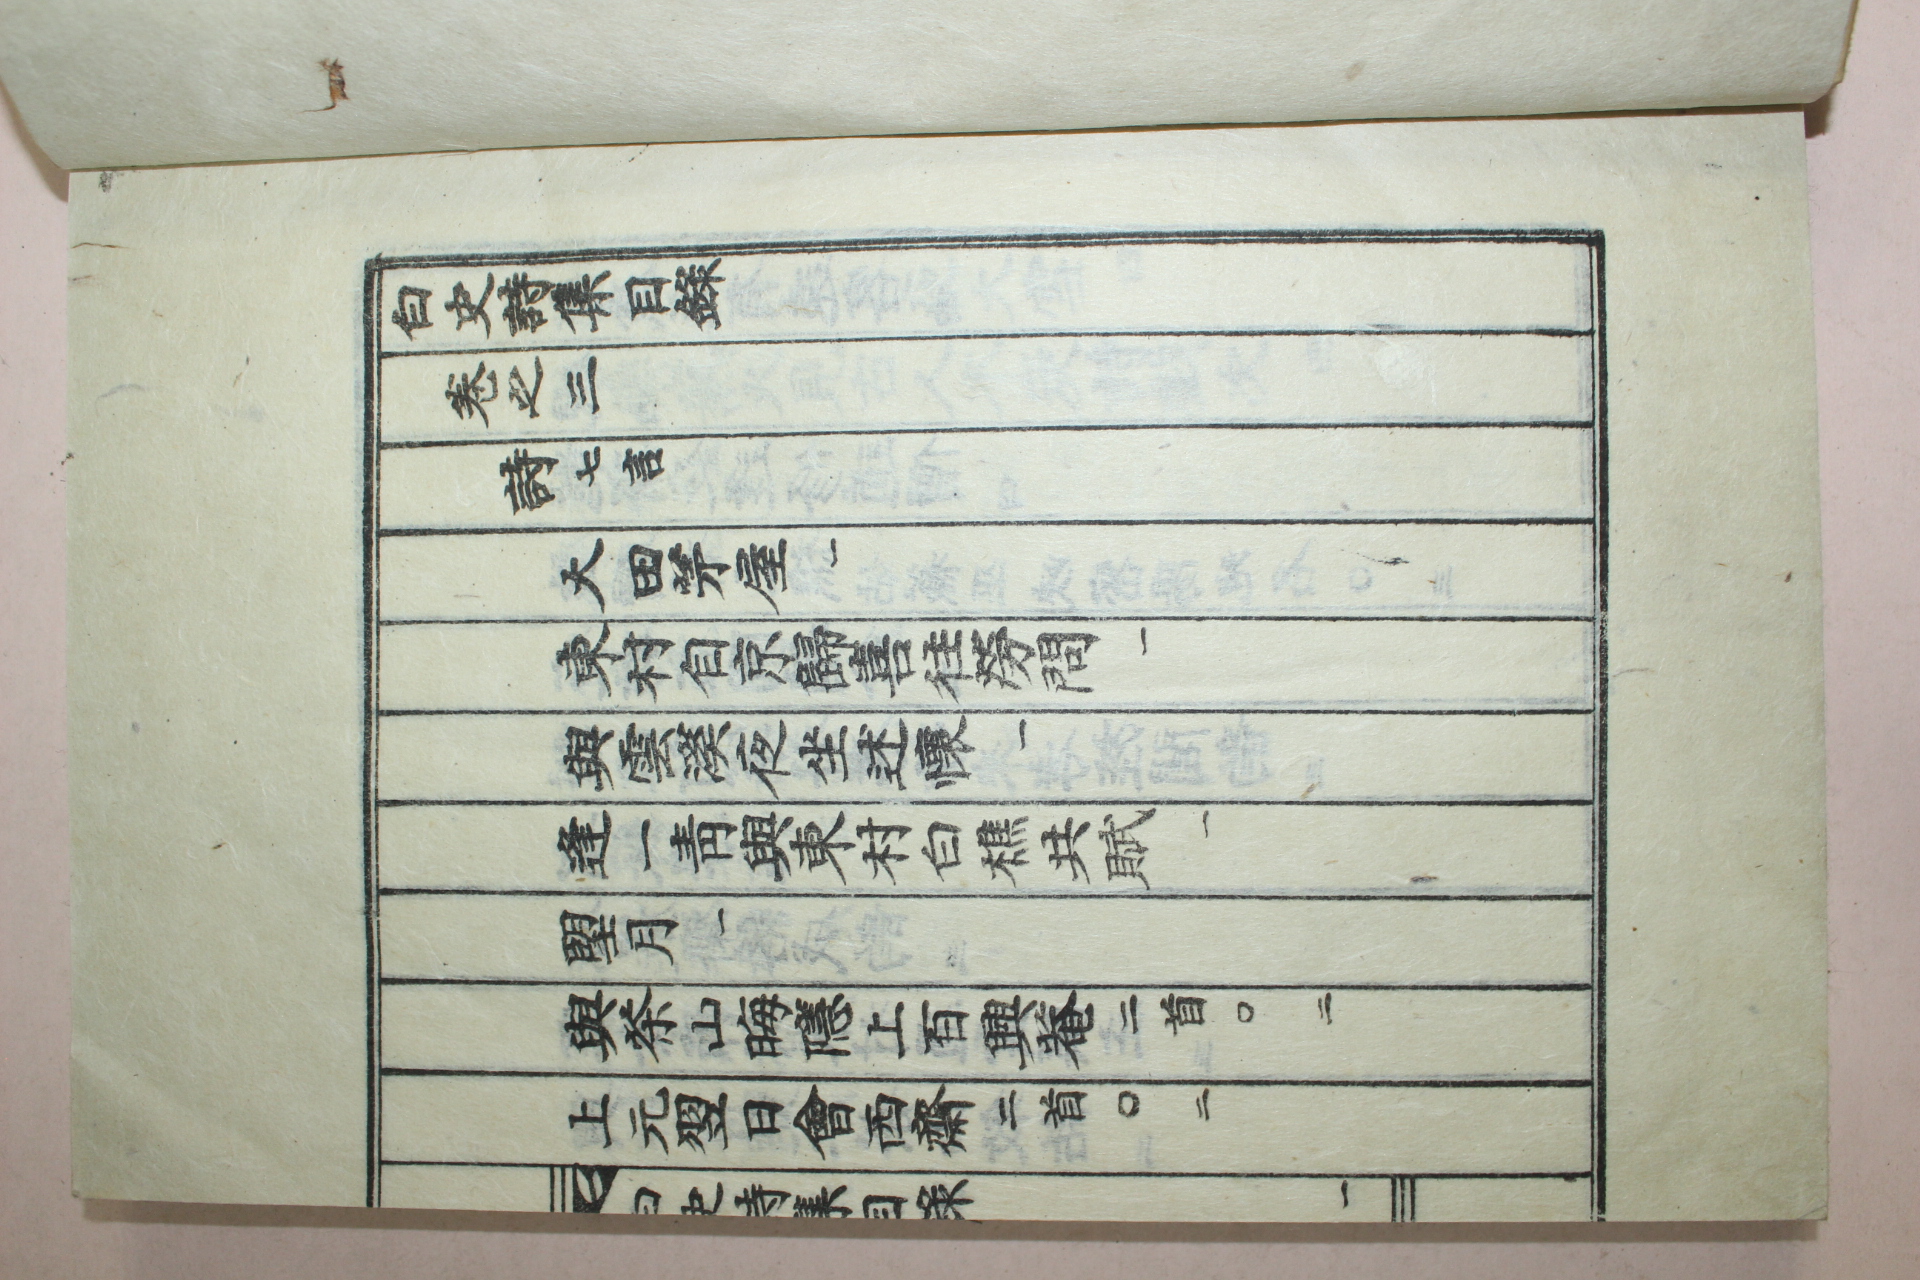 白史詩集目錄
卷之三
詩七言
大田茅屋 一
東村自京歸喜往勞問 一
與雲溪夜坐述懷 一
逢一靑與東村白樵共賦 一
朢月 一
與茶山晦隱上百興菴二首○ 二
上元翌日會西齋二首○ 二
白史詩集目錄 一